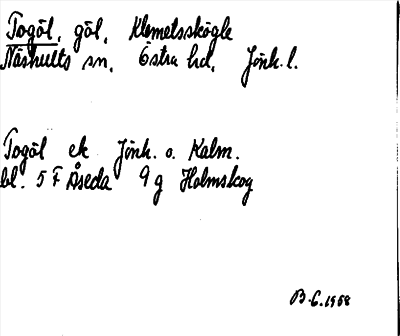 Togöl, göl, Klemetsskögle
Näshults sn. Östra hd. Jönk. l.
Togöl ek Jönk. o. Kalm.
bl. 5 F Åseda 9 g Holmskog
B.G. 1968